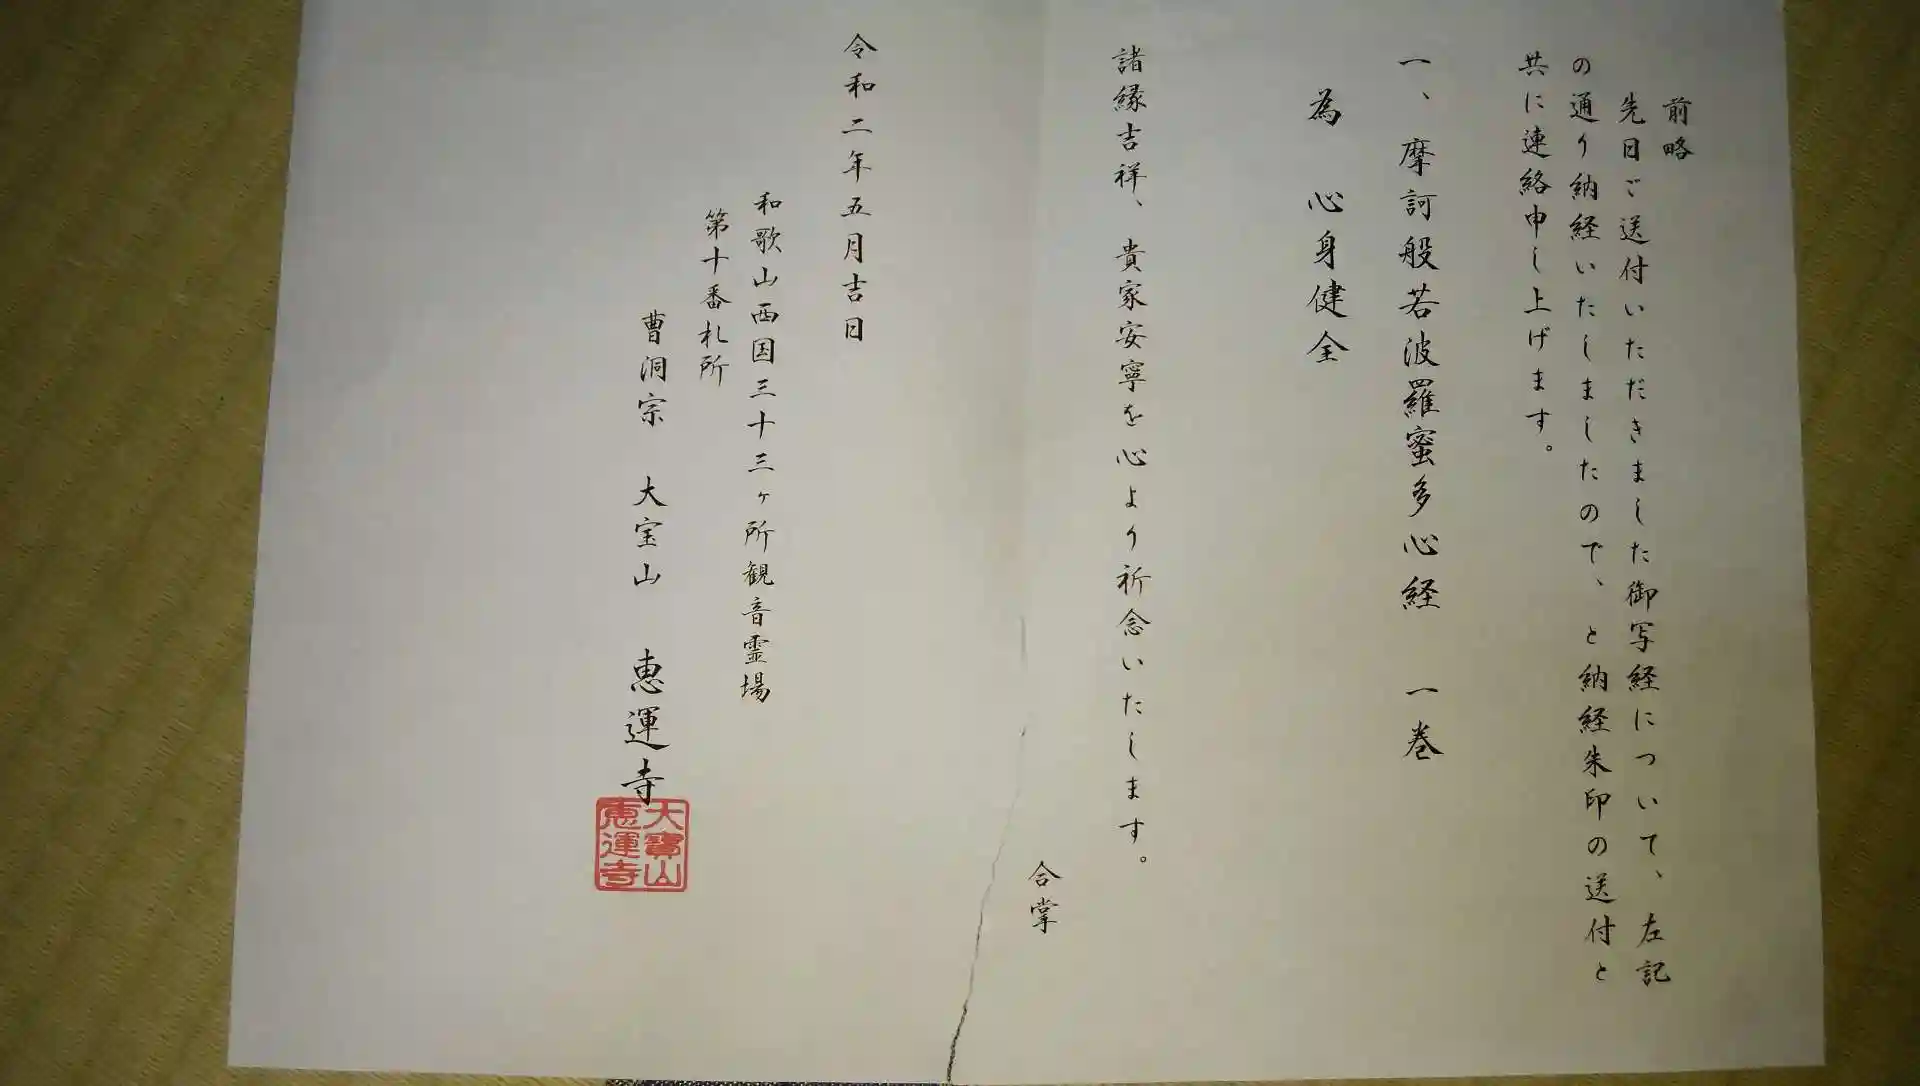 前略
先日ご送付いただきました御写経について、左記
の通り納経いたしましたので、と納経朱印の送付と
共に連絡申し上げます。
一、摩訶般若波羅蜜多心経 一巻
為 心身健全
諸縁吉祥、貴家安寧を心より祈念いたします。
合掌
令和二年五月吉日
和歌山西国三十三ヶ所観音霊場
第十番札所
曹洞宗 大宝山 恵運寺
大寶山
恵運寺